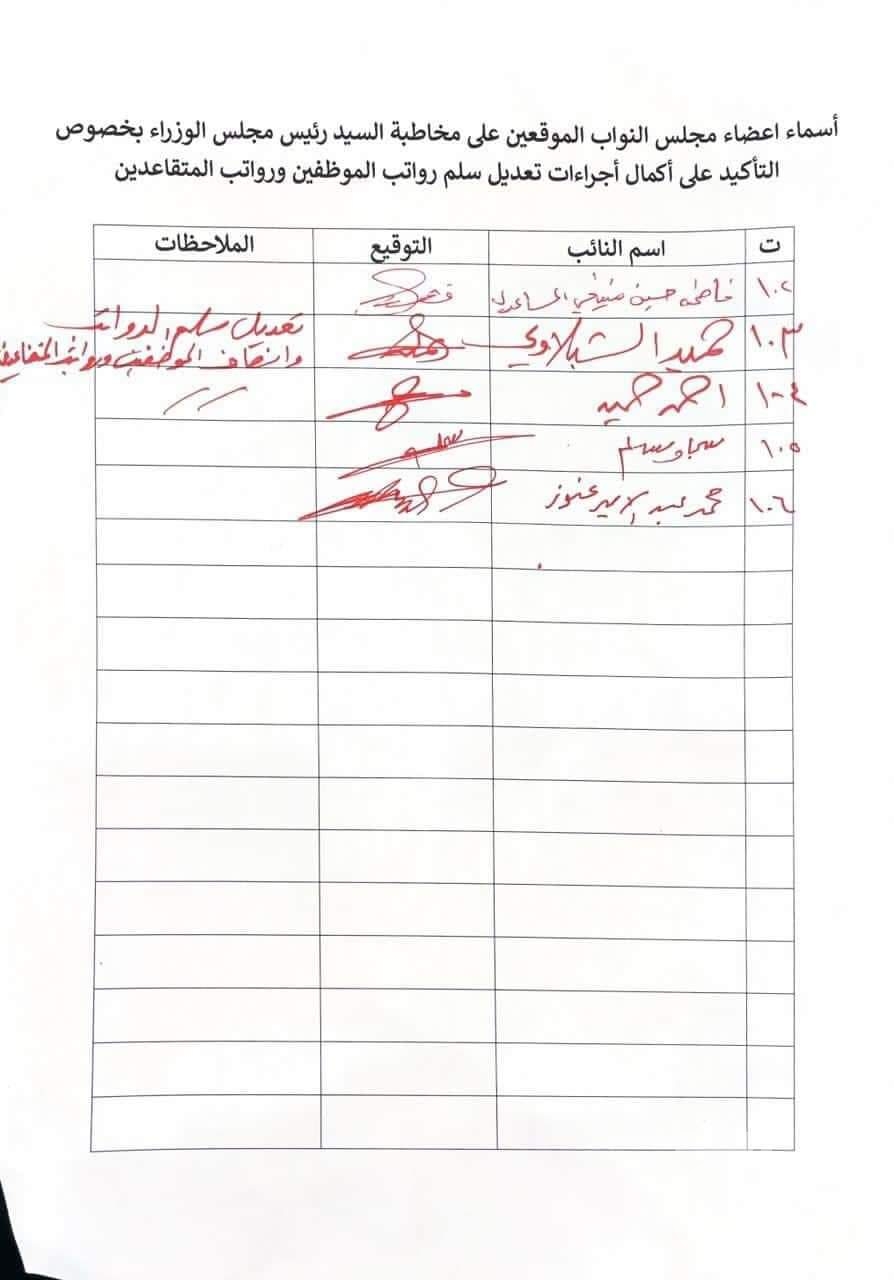 أسماء اعضاء مجلس النواب الموقعين على مخاطبة السيد رئيس مجلس الوزراء بخصوص
التأكيد على أكمال أجراءات تعديل سلم رواتب الموظفين ورواتب المتقاعدين
ت اسم النائب التوقيع الملاحظات
١٠٢ فاطمة حسين
١٠٣ حميد الشبلاوي تعديل سلم الرواتب
وانصاف الموظفين ورواتب المتقاعدين
١٠٤ احمد حميد //
١٠٥ مسلم
١٠٦ محمد عبد الامير عنوز